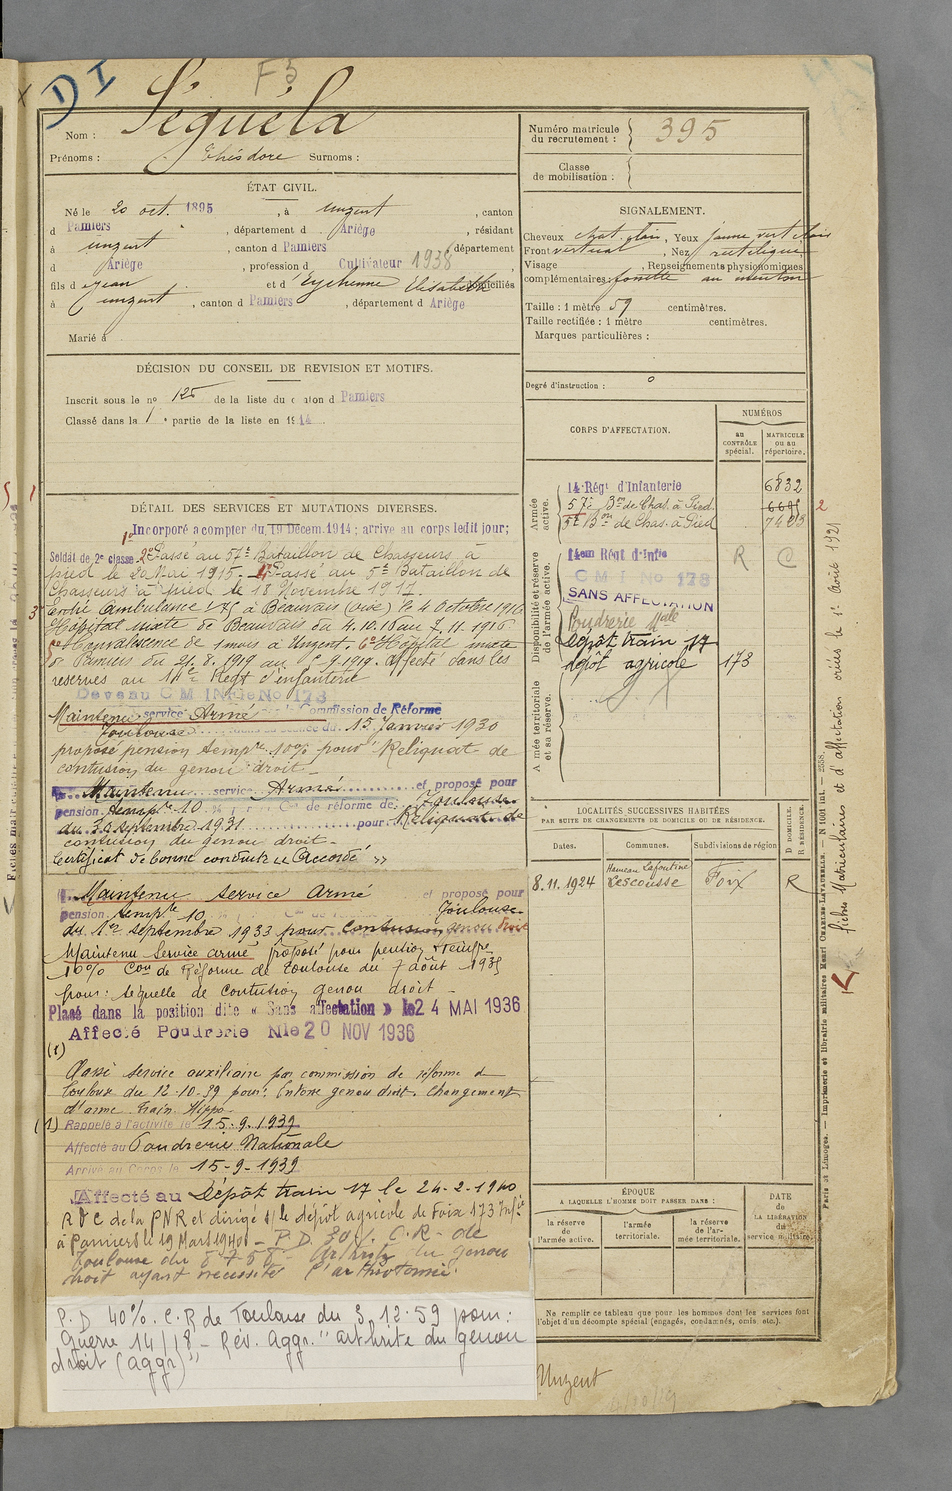 D I
F 5
Nom : Séguéla
Prénoms : Théodore Surnoms :
Numéro matricule du recrutement : 395
Classe de mobilisation :
ÉTAT CIVIL.
Né le 20 oct. 1895, à Unzent, canton
d Pamiers, département d Ariège, résidant
à Unzent, canton d Pamiers, département
d Ariège, profession d Cultivateur 1938
fils d Jean et d Eychenne Elisabeth domiciliés
à Unzent, canton d Pamiers, département d Ariège
Marié à
SIGNALEMENT.
Cheveux chat. clair, Yeux jaune vert clair
Front vertical, Nez rectiligne
Visage , Renseignements physionomiques
complémentaires : fossette au menton
Taille : 1 mètre 59 centimètres.
Taille rectifiée : 1 mètre centimètres.
Marques particulières :
Degré d'instruction : 0
DÉCISION DU CONSEIL DE REVISION ET MOTIFS.
Inscrit sous le no 125 de la liste du canton d Pamiers
Classé dans la 1 e partie de la liste en 1914
DÉTAIL DES SERVICES ET MUTATIONS DIVERSES.
1° Incorporé a compter du 19 Décem. 1914 ; arrive au corps ledit jour ;
Soldat de 2e classe 2° Passé au 57e Bataillon de Chasseurs à
pied le 20 Mai 1915. 4° Passé au 5e Bataillon de
Chasseurs à pied le 18 Novembre 1917
3° Entré ambulance à Beauvais (oise) le 4 Octobre 1916
Hôpital mixte de Beauvais du 4.10.16 au 7.11.1916
5° Convalescence de 1 mois à Unzent. 6° Hôpital mixte
de Pamiers du 21.8.1919 au 5-9-1919. Affecté dans les
réserves au 14e Régt d'infanterie
Deveau C M I No 178
Maintenu service Armé Commission de Réforme
Toulouse du 15 Janvier 1930
proposé pension tempre 10% pour : Reliquat de
contusion du genou droit -
Maintenu service Armé et proposé pour
pension tempre 10 % Con de réforme de Toulouse
du 30 septembre 1931 pour Reliquat de
contusion du genou droit -
Certificat de bonne conduite « Accordé »
Maintenu service armé et proposé pour
pension tempre 10 Toulouse
du 1er septembre 1933 pour contusion genou droit
Maintenu Service armé proposé pour pension tempre
10% Con de Réforme de Toulouse du 7 août 1935
pour : séquelle de contusion genou droit -
Placé dans la position dite « Sans affectation » le 24 MAI 1936
Affecté Poudrerie Nle 20 NOV 1936
(1)
Classé service auxiliaire par commission de réforme de
Toulouse du 12-10-39 pour : Entorse genou droit. Changement
d'arme Train Hippo -
(1) Rappelé à l'activité le 15-9-1939
Affecté au Poudrerie Nationale
Arrivé au Corps le 15-9-1939
Affecté au Dépôt train 17 le 24-2-1940
R V C de la PNR et dirigé s/ le dépôt agricole de Foix 173 Infie
à Pamiers le 19 Mars 1940 - P.D. 30% C.R. de
Toulouse du 8-7-58 - Arthrite du genou
droit ayant nécessité l'arthrotomie.
P.D 40%. C.R de Toulouse du 3.12.59 pour :
Guerre 14/18 - Rév. Aggr. "arthrite du genou
droit (aggr)"
CORPS D'AFFECTATION.
NUMÉROS
au CONTRÔLE spécial.
MATRICULE ou au répertoire.
Armée active.
14e Régt d'Infanterie 6832
57e Bon de Chas. à Pied. 6605 2
5e Bon de Chas. à Pied 7423
Disponibilité et réserve de l'armée active.
14em Régt d'Infie R C
C M I No 178
SANS AFFECTATION
Poudrerie Nale
Dépôt train 17
dépôt agricole 173
Armée territoriale et sa réserve.
LOCALITÉS SUCCESSIVES HABITÉES
PAR SUITE DE CHANGEMENTS DE DOMICILE OU DE RÉSIDENCE.
Dates. Communes. Subdivisions de région D. DOMICILE. R. RÉSIDENCE.
8.11.1924 Hameau Lafontine Lescousse Foix R
ÉPOQUE
A LAQUELLE L'HOMME DOIT PASSER DANS :
la réserve de l'armée active.
l'armée territoriale.
la réserve de l'armée territoriale.
DATE DE LA LIBÉRATION du service militaire.
Ne remplir ce tableau que pour les hommes dont les services font
l'objet d'un décompte spécial (engagés, condamnés, omis, etc.).
Unzent
Paris et Limoges. — Imprimerie et librairie militaires Henri CHARLES-LAVAUZELLE. — N° 1601 int. — 2558.
fiches Matriculaires et d'affectation créées le 1er Août 1921